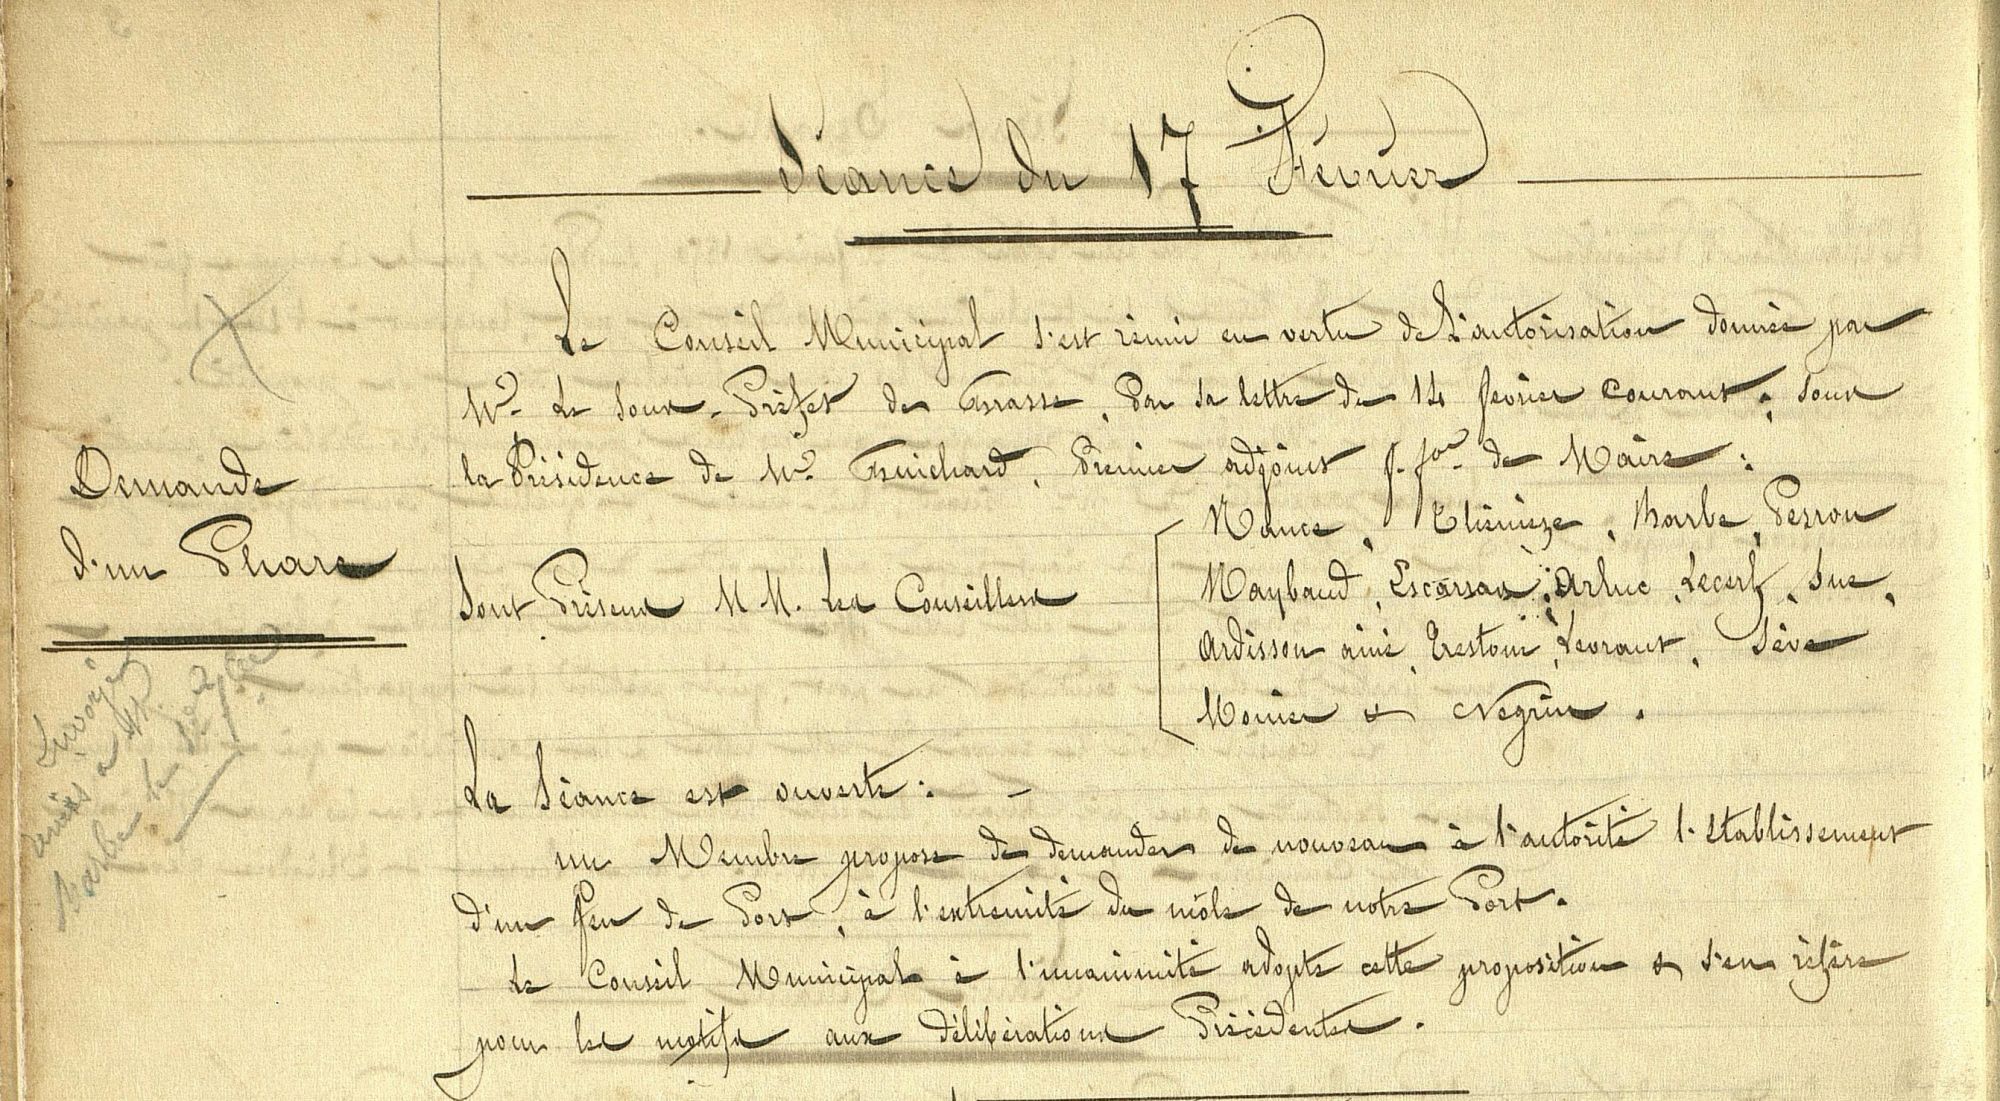 Séance du 17 Février
Le Conseil Municipal s'est réuni en vertu de l'autorisation donnée par
Mr. Le Sous-Préfet de Grasse, par sa lettre du 14 février courant, sous
la Présidence de Mr. Guichard, Premier adjoint f. fon de Maire:
Demande
d'un Phare
Nance, Thémèze, Barbe, Perron
Sont Présens MM. Les Conseillers
Maybaud, Escarras, Arluc, Lecerf, Sue,
Ardisson ainé, Crestoni, Levraut, Sève
Monier & Negrin.
Envoyé
à Mr
Barbe le
La Séance est ouverte: –
un Membre propose de demander de nouveau à l'autorité l'établissement
d'un feu de Port, à l'extrémité du môle de notre Port.
Le Conseil Municipal à l'unanimité adopte cette proposition & s'en réfère
pour les motifs aux délibérations Précédentes.